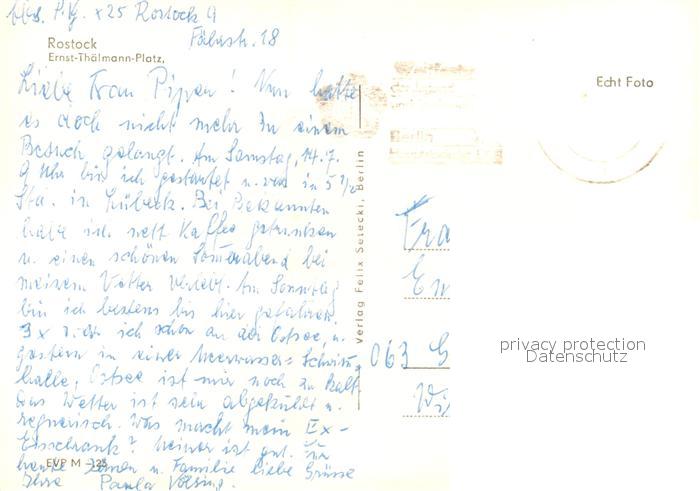 25 Rostock
18
Rostock
Ernst-Thälmann-Platz,
Echt Foto
Liebe Frau ! Nun hatte
es doch nicht mehr zu einem
Besuch gelangt. Am Samstag, 14.7.
9 Uhr bin ich gestartet u. war in 5 1/2
Std. in Lübeck. Bei Bekannten
habe ich nett Kaffee getrunken
u. einen schönen Sommerabend bei
meinem Vetter verlebt. Am Sonntag
bin ich bestens bis hier gefahren.
3x ich schon an der Ostsee, u.
gestern in einer Meerwasser= Schwimm
halle, Ostsee ist mir noch zu kalt.
Das Wetter ist sehr abgekühlt u.
regnerisch. Was macht mein Ex-
Eisschrank? Meiner ist gut. Für
heute Ihnen u. Familie liebe Grüsse
Ihre Paula
EVP M
Verlag Felix Setecki, Berlin
Berlin
Fra
063
privacy protection
Datenschutz